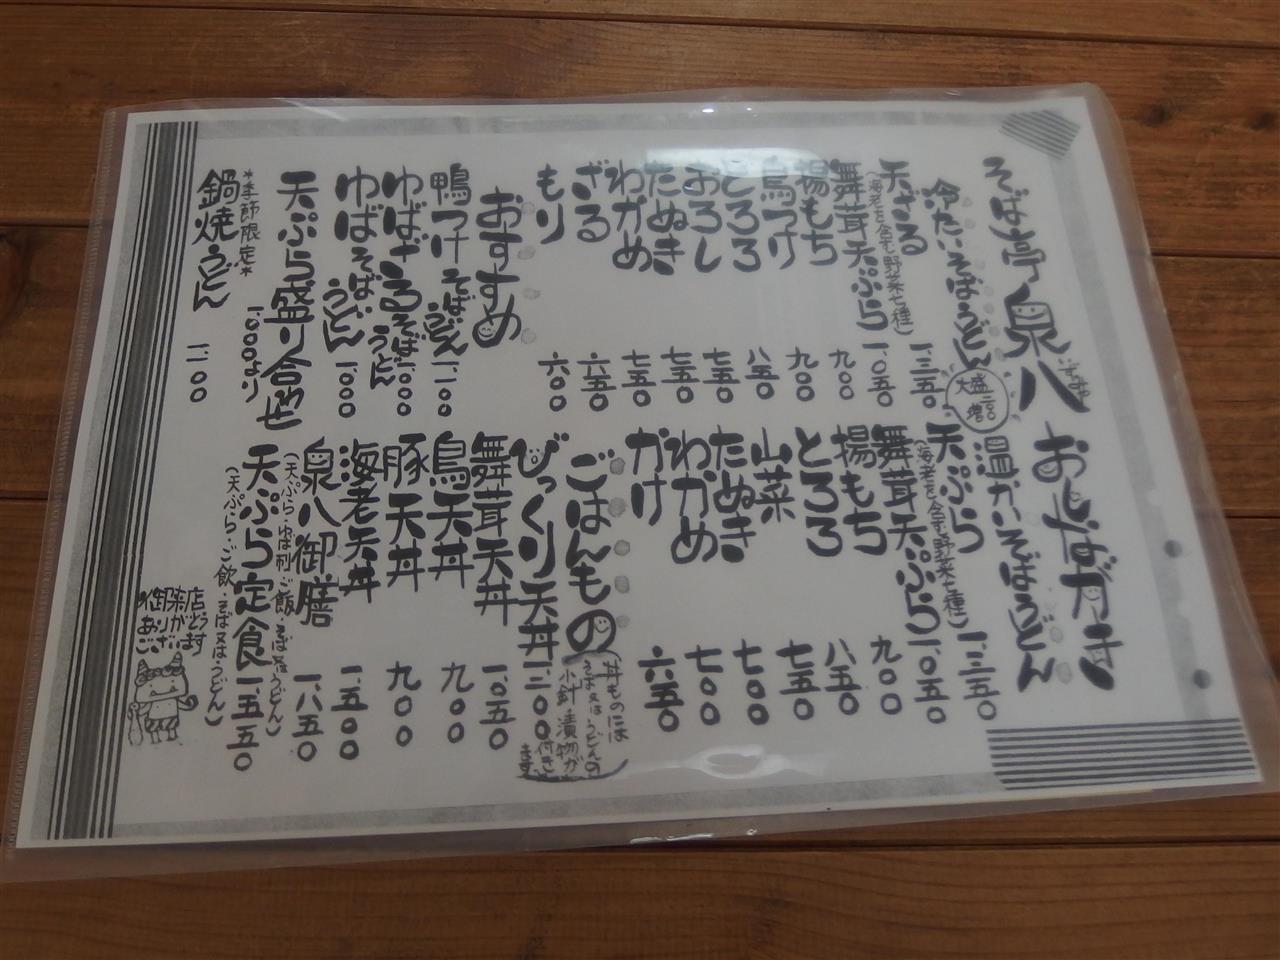 そば亭 泉八 おしながき
いずみや
冷たいそばうどん
大盛二〇〇増
天ざる 一、三五〇
(海老を含む野菜七種)
舞茸天ぷら 一、〇五〇
揚もち 九〇〇
鳥つけ 九〇〇
とろろ 八五〇
おろし 七五〇
たぬき 七五〇
わかめ 七五〇
ざる 六五〇
もり 六〇〇
おすすめ
鴨つけ そばうどん 一、一〇〇
ゆばざる そばうどん 一、〇〇〇
ゆばそば うどん 一、〇〇〇
天ぷら盛り合わせ
一、〇〇〇より
*季節限定*
鍋焼うどん 一、一〇〇
温かいそばうどん
天ぷら 一、三五〇
(海老を含む野菜七種)
舞茸天ぷら 一、〇五〇
揚もち 九〇〇
とろろ 八五〇
山菜 七五〇
たぬき 七〇〇
わかめ 七〇〇
かけ 六五〇
ごはんもの
丼ものには
そば又はうどんの
小針 漬物が
付きます
びっくり天丼 一、二〇〇
舞茸天丼 一、〇五〇
鳥天丼 九〇〇
豚天丼 九〇〇
海老天丼 一、五〇〇
泉八御膳 一、八五〇
(天ぷら・ゆば刺・ご飯・そば又は・うどん)
天ぷら定食 一、五五〇
(天ぷら・ご飲・そば又は・うどん)
御来店
ありがとう
ございます